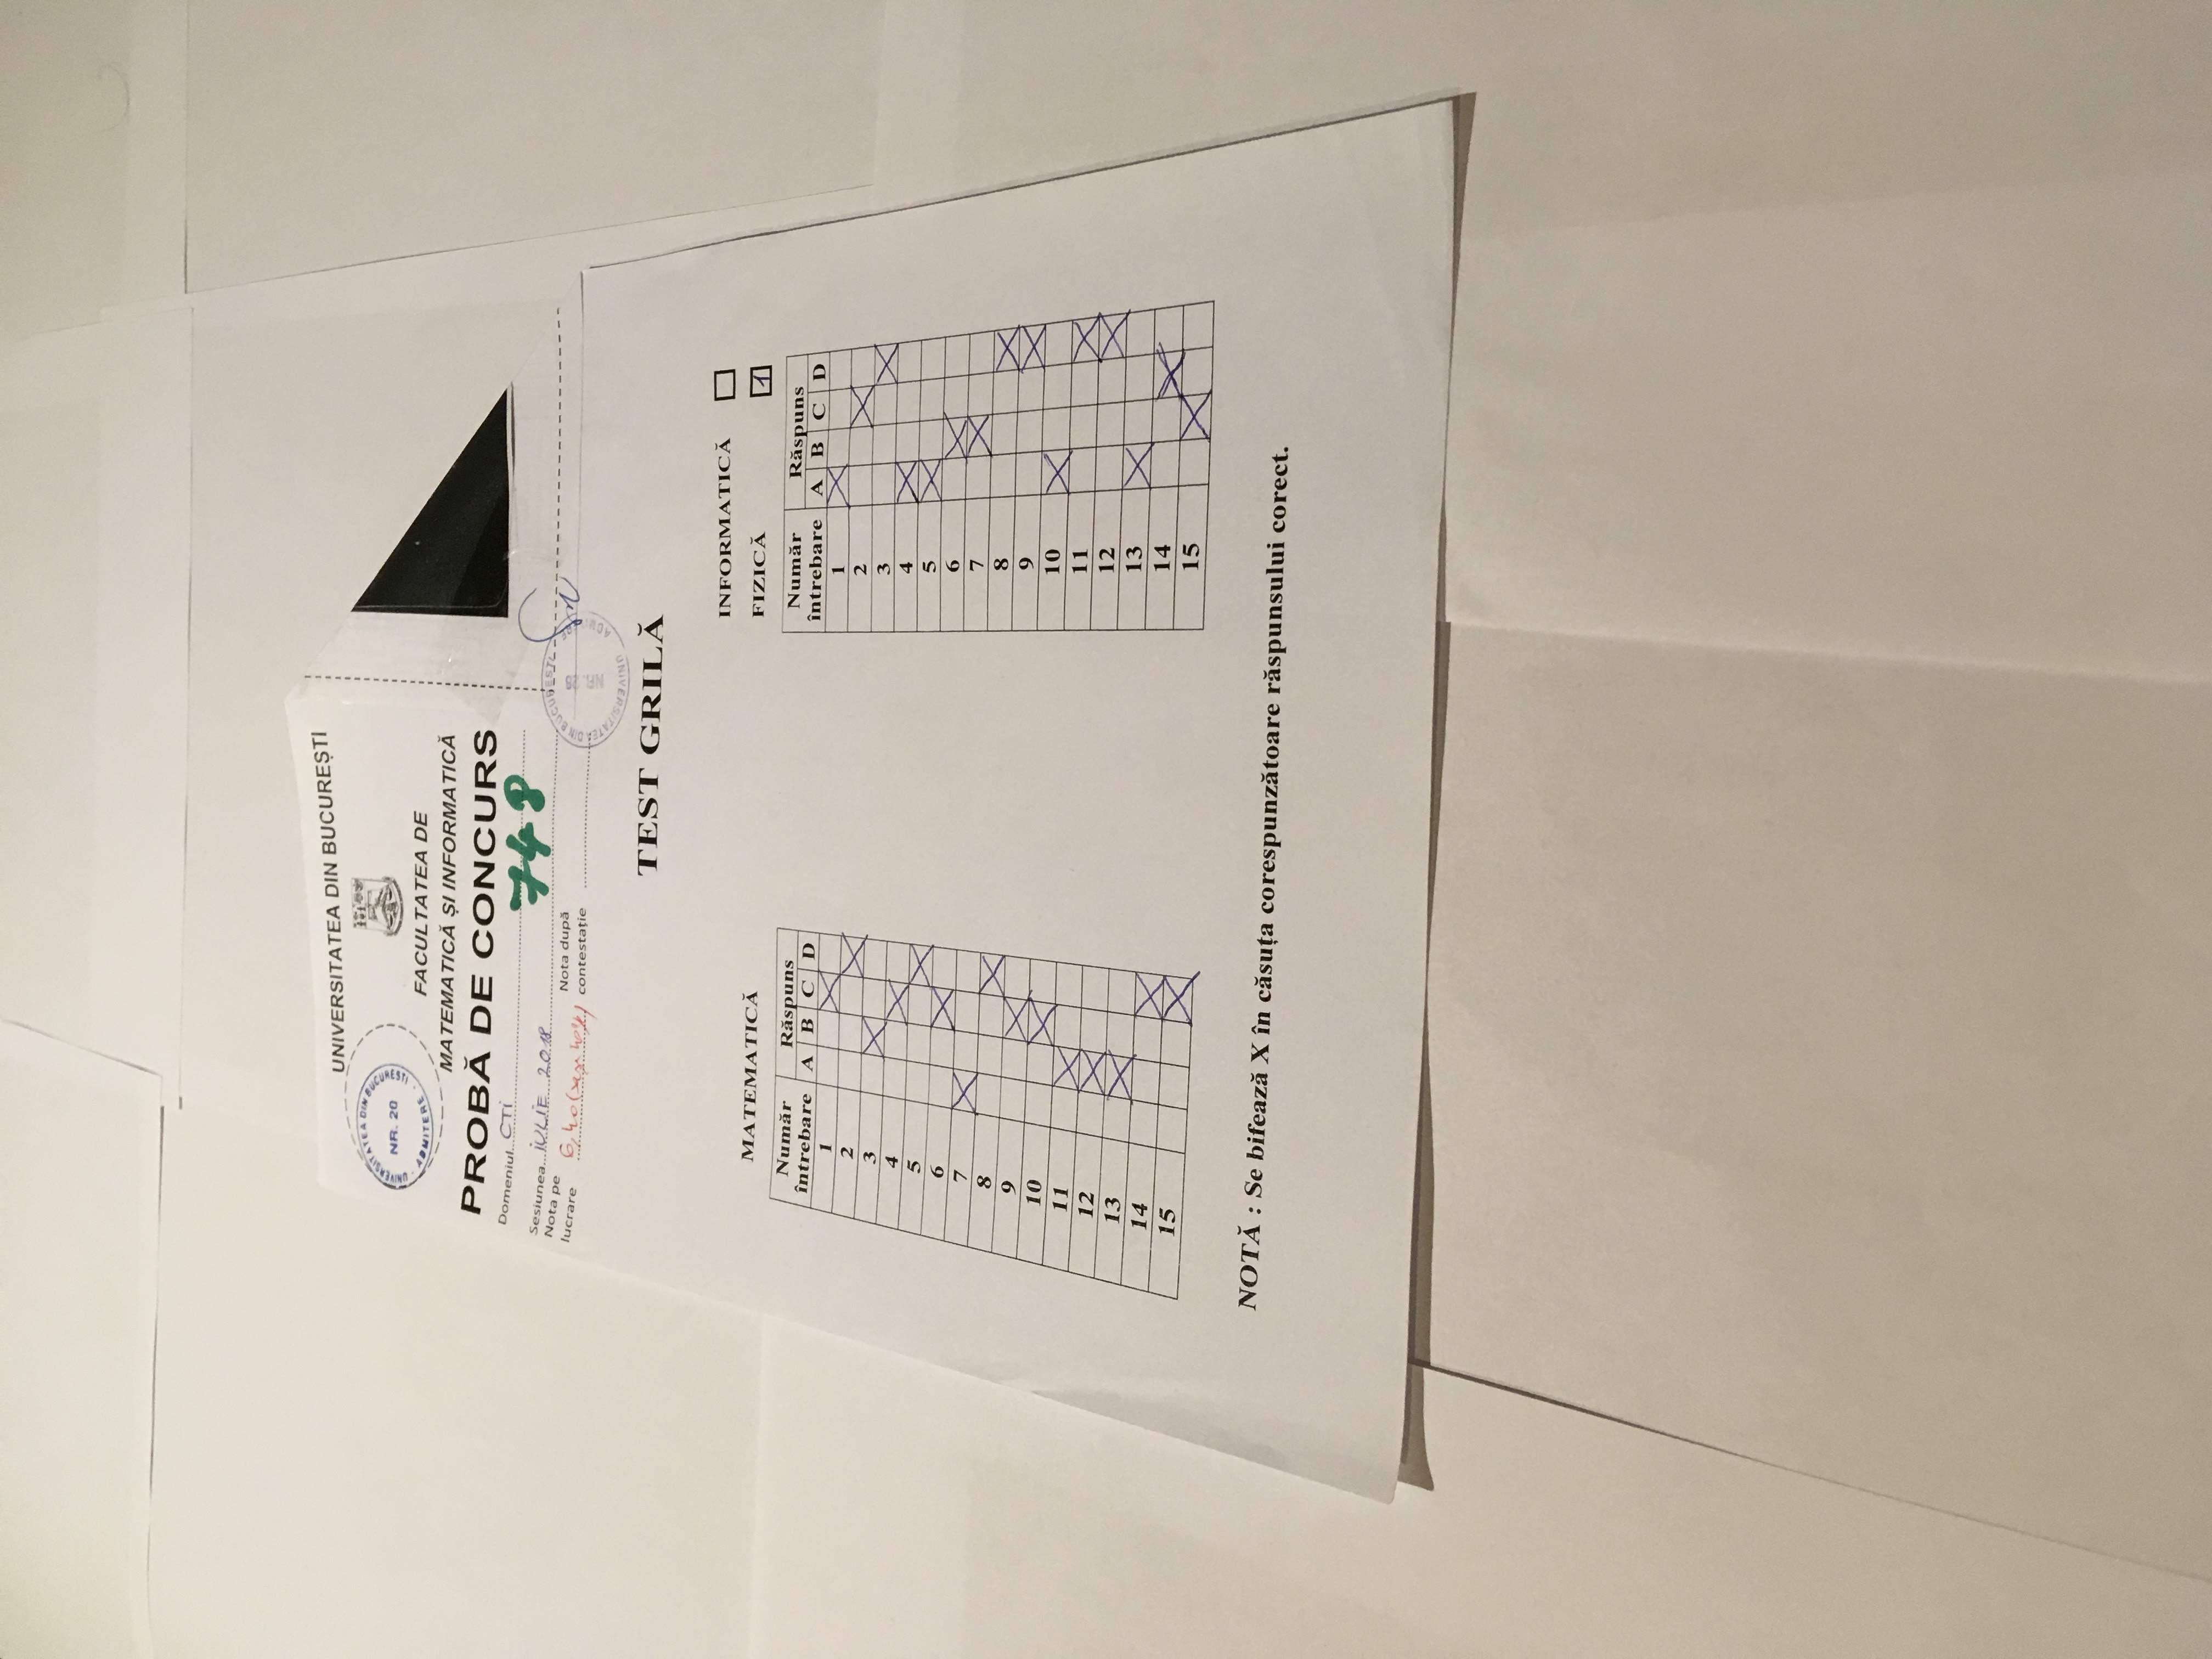 UNIVERSITATEA DIN BUCUREȘTI
UNIVERSITATEA DIN BUCUREȘTI
NR. 20
ADMITERE
FACULTATEA DE
MATEMATICĂ ȘI INFORMATICĂ
PROBĂ DE CONCURS
Domeniul CTi
748
Sesiunea iULIE 2018
Nota pe lucrare 6,40 (șase 40%)
Nota după contestație
UNIVERSITATEA DIN BUCUREȘTI
NR. 26
TEST GRILĂ
INFORMATICĂ
FIZICĂ 1
MATEMATICĂ
Număr întrebare Răspuns
A B C D
1 X
2 X
3 X
4 X
5 X
6 X
7 X
8 X
9 X
10 X
11 X
12 X
13 X
14 X
15 X
Număr întrebare Răspuns
A B C D
1 X
2 X
3 X
4 X
5 X
6 X
7 X
8 X
9 X
10 X
11 X
12 X
13 X
14 X
15 X
NOTĂ : Se bifează X în căsuța corespunzătoare răspunsului corect.